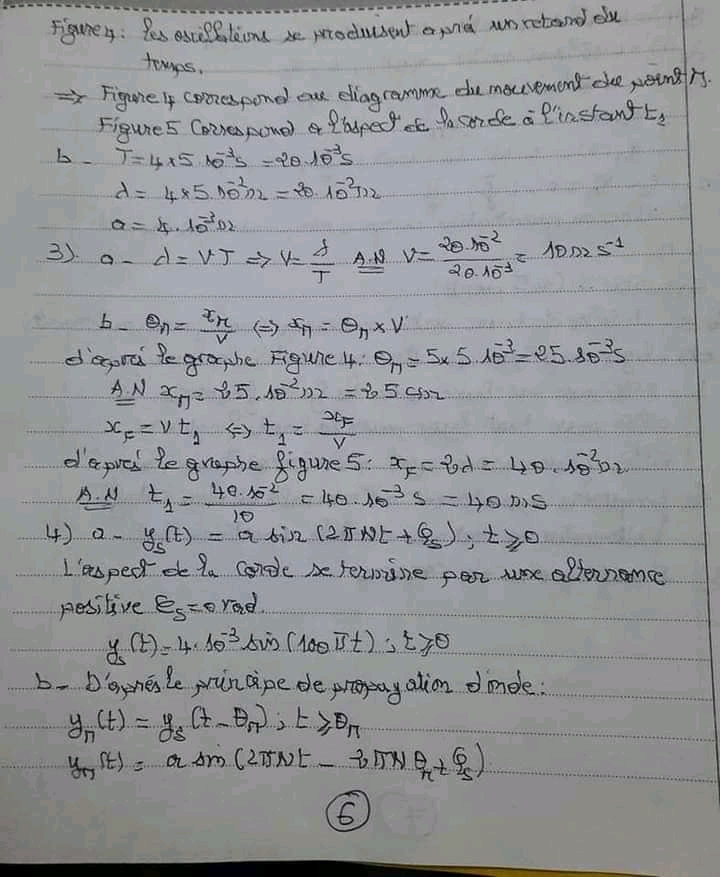 Figure 4: Les oscillations se produisent après un retard du
temps.
=> Figure 4 correspond au diagramme du mouvement du point M.
Figure 5 Correspond à l'aspect de la corde à l'instant t₁
b - T = 4 × 5.10⁻³s = 20.10⁻³s
λ = 4 × 5.10⁻²m = 20.10⁻²m
a = 4.10⁻³m
3) a - λ = VT => V = λ/T A.N V = 20.10⁻²/20.10⁻³ = 10 m s⁻¹
b - θM = xM/V <=> xM = θM × V
d'après le graphe Figure 4. θM = 5 × 5.10⁻³ = 25.10⁻³s
A.N xM = 25.10⁻²m = 25 cm
xF = V t₁ <=> t₁ = xF/V
d'après le graphe figure 5: xF = 2λ = 40.10⁻²m
A.N t₁ = 40.10⁻²/10 = 40.10⁻³ s = 40 ms
4) a - yS(t) = a sin (2πNt + φS) ; t ≥ 0
L'aspect de la corde se termine par une alternance
positive φS = 0 rad.
yS(t) = 4.10⁻³ sin (100πt) ; t ≥ 0
b - D'après le principe de propagation d'onde:
yM(t) = yS(t - θM) ; t ≥ θM
yM(t) = a sin (2πNt - 2πNθM + φS)
6